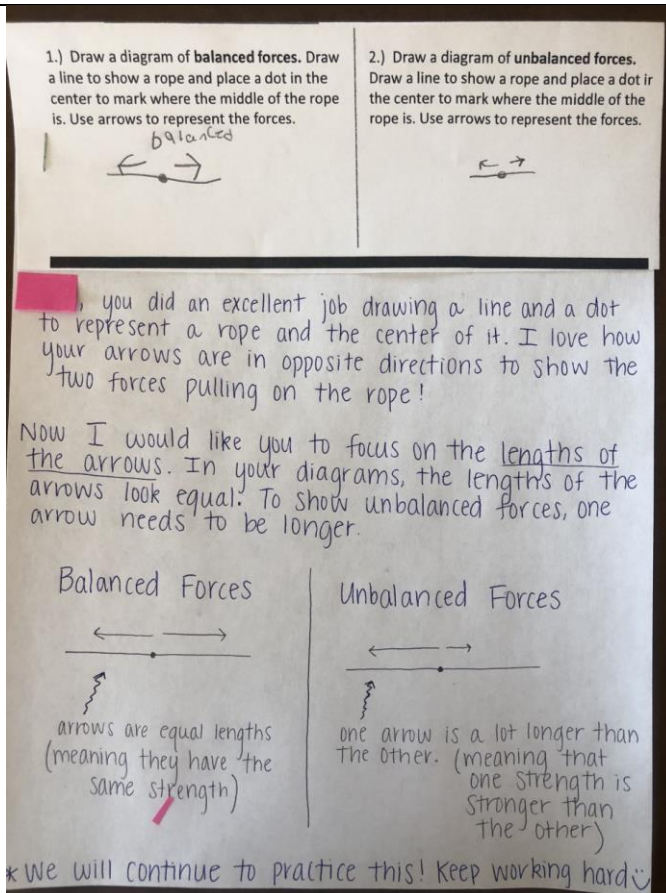 1.) Draw a diagram of balanced forces. Draw
a line to show a rope and place a dot in the
center to mark where the middle of the rope
is. Use arrows to represent the forces.
balanced
2.) Draw a diagram of unbalanced forces.
Draw a line to show a rope and place a dot ir
the center to mark where the middle of the
rope is. Use arrows to represent the forces.
, you did an excellent job drawing a line and a dot
to represent a rope and the center of it. I love how
your arrows are in opposite directions to show the
two forces pulling on the rope!
Now I would like you to focus on the lengths of
the arrows. In your diagrams, the lengths of the
arrows look equal. To show unbalanced forces, one
arrow needs to be longer.
Balanced Forces
arrows are equal lengths
(meaning they have the
same strength)
Unbalanced Forces
one arrow is a lot longer than
the other. (meaning that
one strength is
stronger than
the other)
* We will continue to practice this! Keep working hard